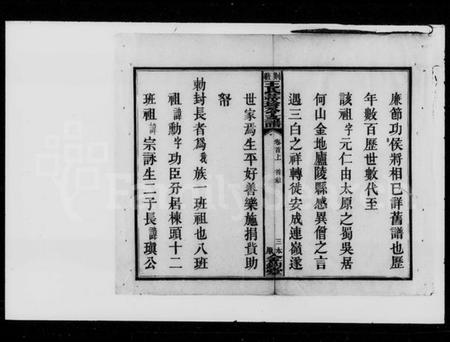 廉節功侯將相已詳舊譜也歷
年數百歷世數代至
該祖字元仁由太原之蜀吳居
何山金地廬陵縣感異僧之言
遇三白之祥轉徙安成連嶺遂
卷首上
三本
世家焉生平好善樂施捐貲助
帑
勅封長者為我族一班祖也八班
祖諱勳字功臣分居棟頭十二
班祖諱宗詠生二子長諱瑱公
FamilySearch